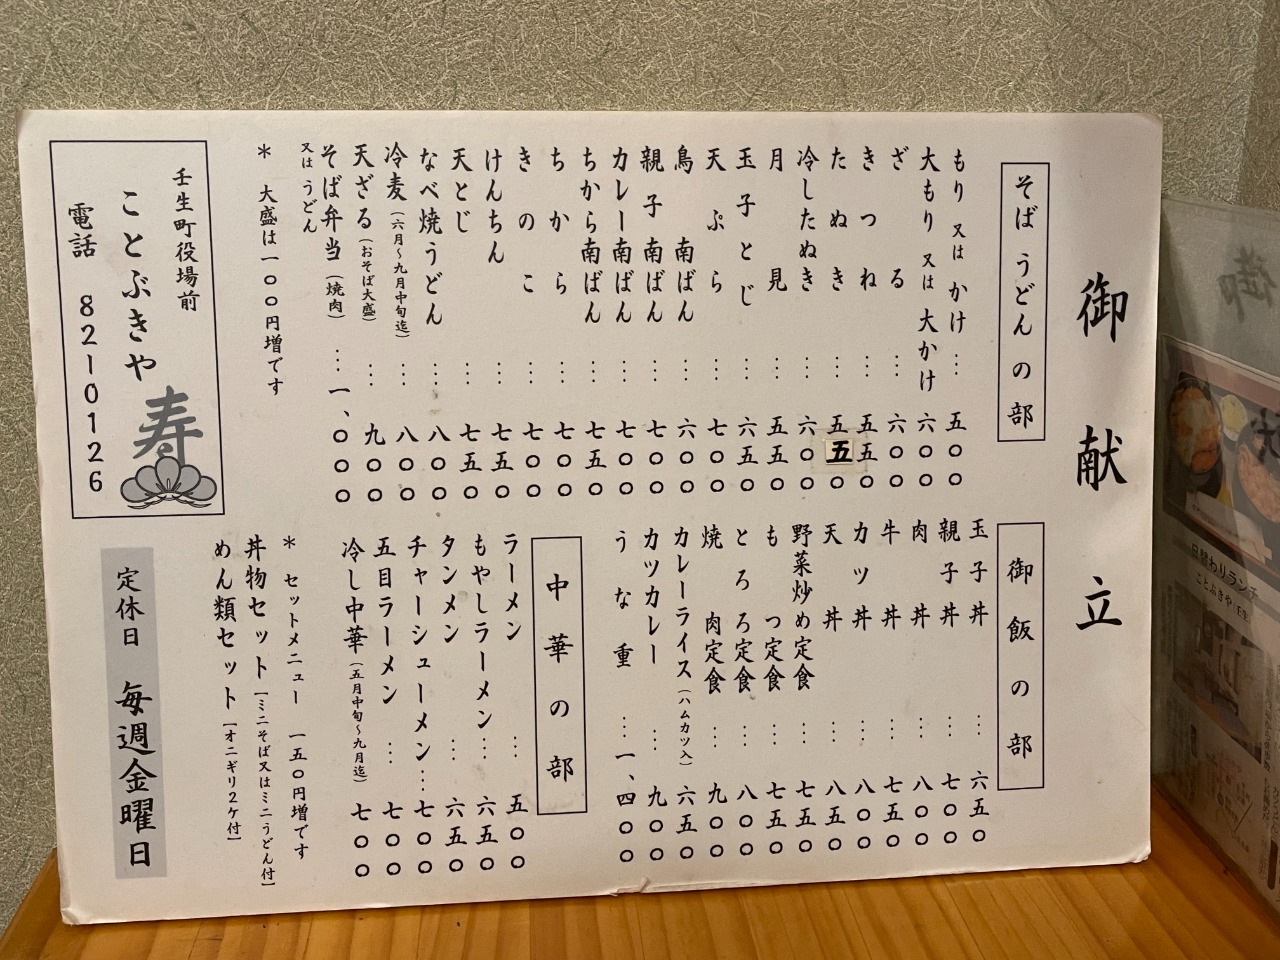 御献立
そばうどんの部
もり又はかけ…五〇〇
大もり又は大かけ 六〇〇
ざる…六〇〇
きつね…五五〇
たぬき…五五〇
冷したぬき…六〇〇
月見…五五〇
玉子とじ…六五〇
天ぷら…七〇〇
鳥南ばん…六〇〇
親子南ばん…七〇〇
カレー南ばん…七〇〇
ちから南ばん…七五〇
ちから…七〇〇
きのこ…七〇〇
けんちん…七五〇
天とじ…七五〇
なべ焼うどん…八〇〇
冷麦(六月～九月中旬迄)…八〇〇
天ざる(おそば大盛)…九〇〇
そば弁当(焼肉)…一、〇〇〇
又はうどん
＊ 大盛は一〇〇円増です
御飯の部
玉子丼…六五〇
親子丼…七〇〇
肉丼…八〇〇
牛丼…七五〇
カツ丼…八〇〇
天丼…八五〇
野菜炒め定食…七五〇
もつ定食…七五〇
とろろ定食…八〇〇
焼肉定食…九〇〇
カレーライス(ハムカツ入)六五〇
カツカレー…九〇〇
うな重…一、四〇〇
中華の部
ラーメン…五〇〇
もやしラーメン…六五〇
タンメン…六五〇
チャーシューメン…七〇〇
五目ラーメン…七〇〇
冷し中華(五月中旬～九月迄)七〇〇
＊ セットメニュー 一五〇円増です
丼物セット[ミニそば又はミニうどん付]
めん類セット[オニギリ2ケ付]
壬生町役場前
ことぶきや
寿
電話 82-0126
定休日 毎週金曜日
日替わりランチ